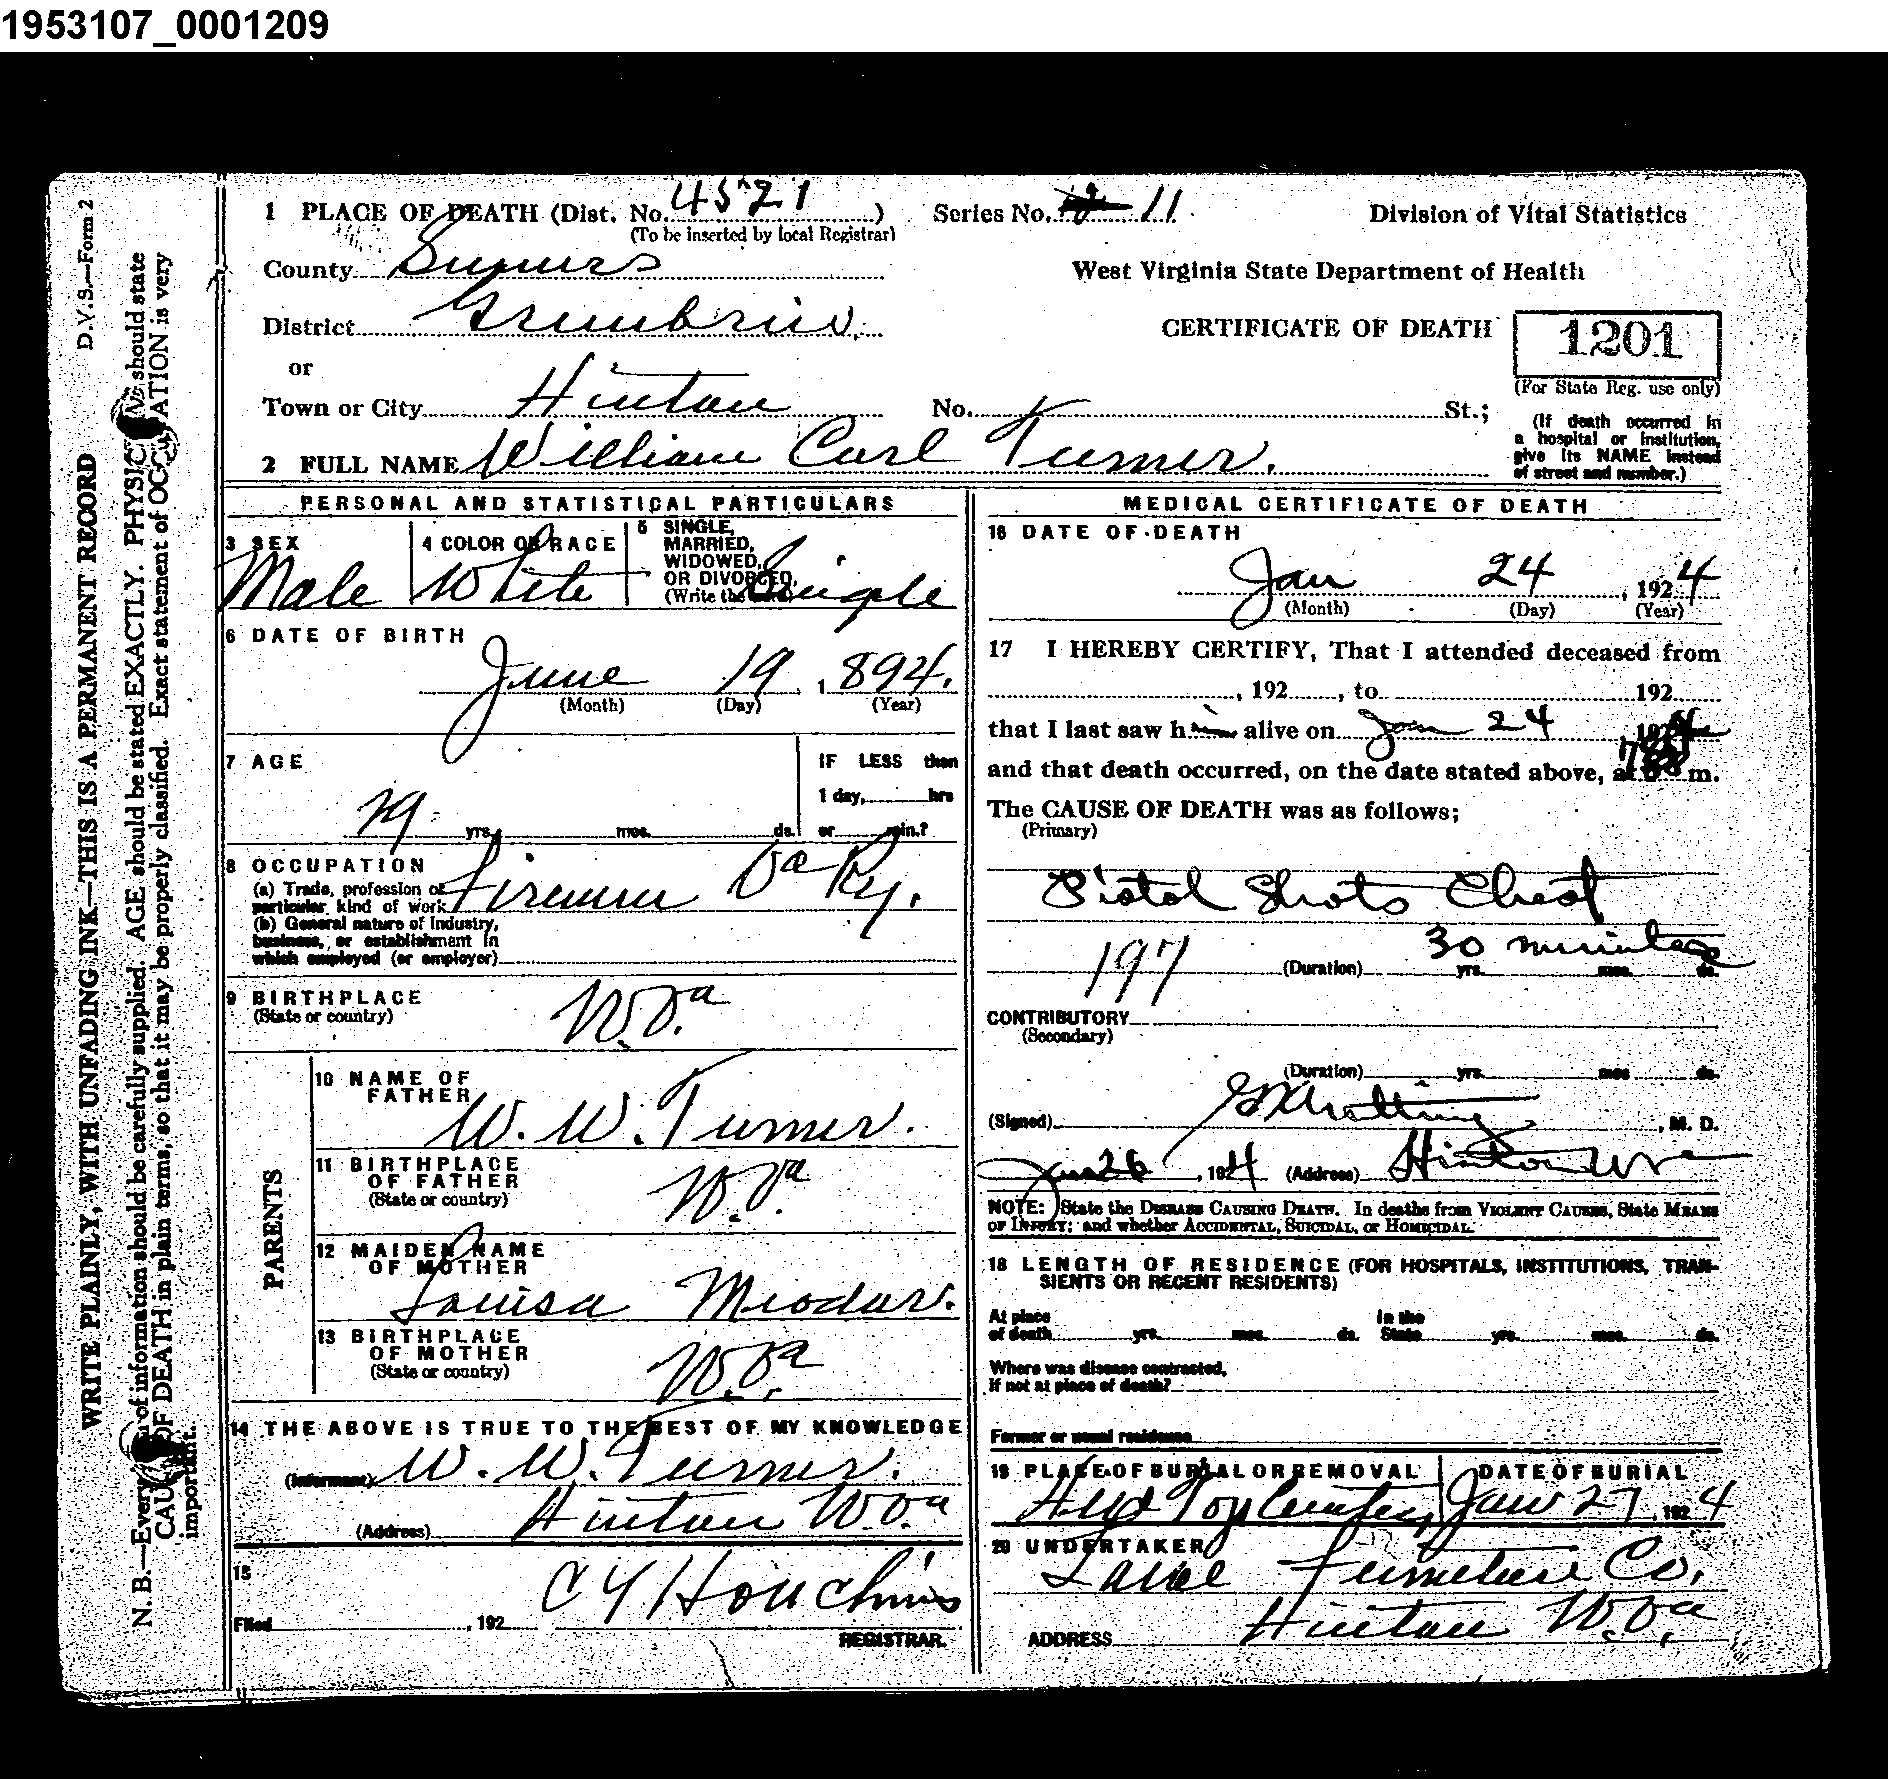 1953107_0001209
D.V.S.—Form 2
WRITE PLAINLY, WITH UNFADING INK—THIS IS A PERMANENT RECORD
N. B.—Every of information should be carefully supplied. AGE should be stated EXACTLY. PHYSIC should state
CAU OF DEATH in plain terms, so that it may be properly classified. Exact statement of OCCUPATION is very
important.
1 PLACE OF DEATH (Dist. No. 4521)
(To be inserted by local Registrar)
Series No. 11
Division of Vital Statistics
County Sumers
West Virginia State Department of Health
District
CERTIFICATE OF DEATH
1201
(For State Reg. use only)
or
Town or City Hinton
No. St.;
(If death occurred in
a hospital or institution,
give its NAME instead
of street and number.)
2 FULL NAME William Carl Turner.
PERSONAL AND STATISTICAL PARTICULARS
3 SEX
Male
4 COLOR OR RACE
White
5 SINGLE,
MARRIED,
WIDOWED,
OR DIVORCED,
(Write the
Single
6 DATE OF BIRTH
June 19, 1894.
(Month) (Day) (Year)
7 AGE
29 yrs. mos. ds.
IF LESS than
1 day, hrs
or min.?
8 OCCUPATION
(a) Trade, profession or
particular kind of work Fireman Va Ry.
(b) General nature of Industry,
business, or establishment in
which employed (or employer)
9 BIRTHPLACE
(State or country)
W.Va
PARENTS
10 NAME OF
FATHER
W. W. Turner.
11 BIRTHPLACE
OF FATHER
(State or country)
W.Va
12 MAIDEN NAME
OF MOTHER
Louisa
13 BIRTHPLACE
OF MOTHER
(State or country)
W.Va
14 THE ABOVE IS TRUE TO THE BEST OF MY KNOWLEDGE
(Informant) W. W. Turner.
(Address) Hinton W.Va
15
Filed , 192
C Y Houchins
REGISTRAR.
MEDICAL CERTIFICATE OF DEATH
16 DATE OF DEATH
Jan 24, 1924
(Month) (Day) (Year)
17 I HEREBY CERTIFY, That I attended deceased from
, 192 , to 192
that I last saw him alive on Jan 24
and that death occurred, on the date stated above, at m.
The CAUSE OF DEATH was as follows;
(Primary)
Pistol Shots Chest
197 (Duration) 30 minutes yrs. mos. ds.
CONTRIBUTORY
(Secondary)
(Duration) yrs. mos. ds.
(Signed) , M. D.
Jan 26, 1924 (Address) Hinton W Va
NOTE: State the DISEASE CAUSING DEATH. In deaths from VIOLENT CAUSES, State MEANS
OF INJURY; and whether ACCIDENTAL, SUICIDAL, or HOMICIDAL.
18 LENGTH OF RESIDENCE (FOR HOSPITALS, INSTITUTIONS, TRAN-
SIENTS OR RECENT RESIDENTS)
At place
of death yrs. mos. ds.
In the
State yrs. mos. ds.
Where was disease contracted,
if not at place of death?
Former or usual residence
19 PLACE OF BURIAL OR REMOVAL
Top
DATE OF BURIAL
Jan 27, 1924
20 UNDERTAKER
Furniture Co.
ADDRESS Hinton W.Va